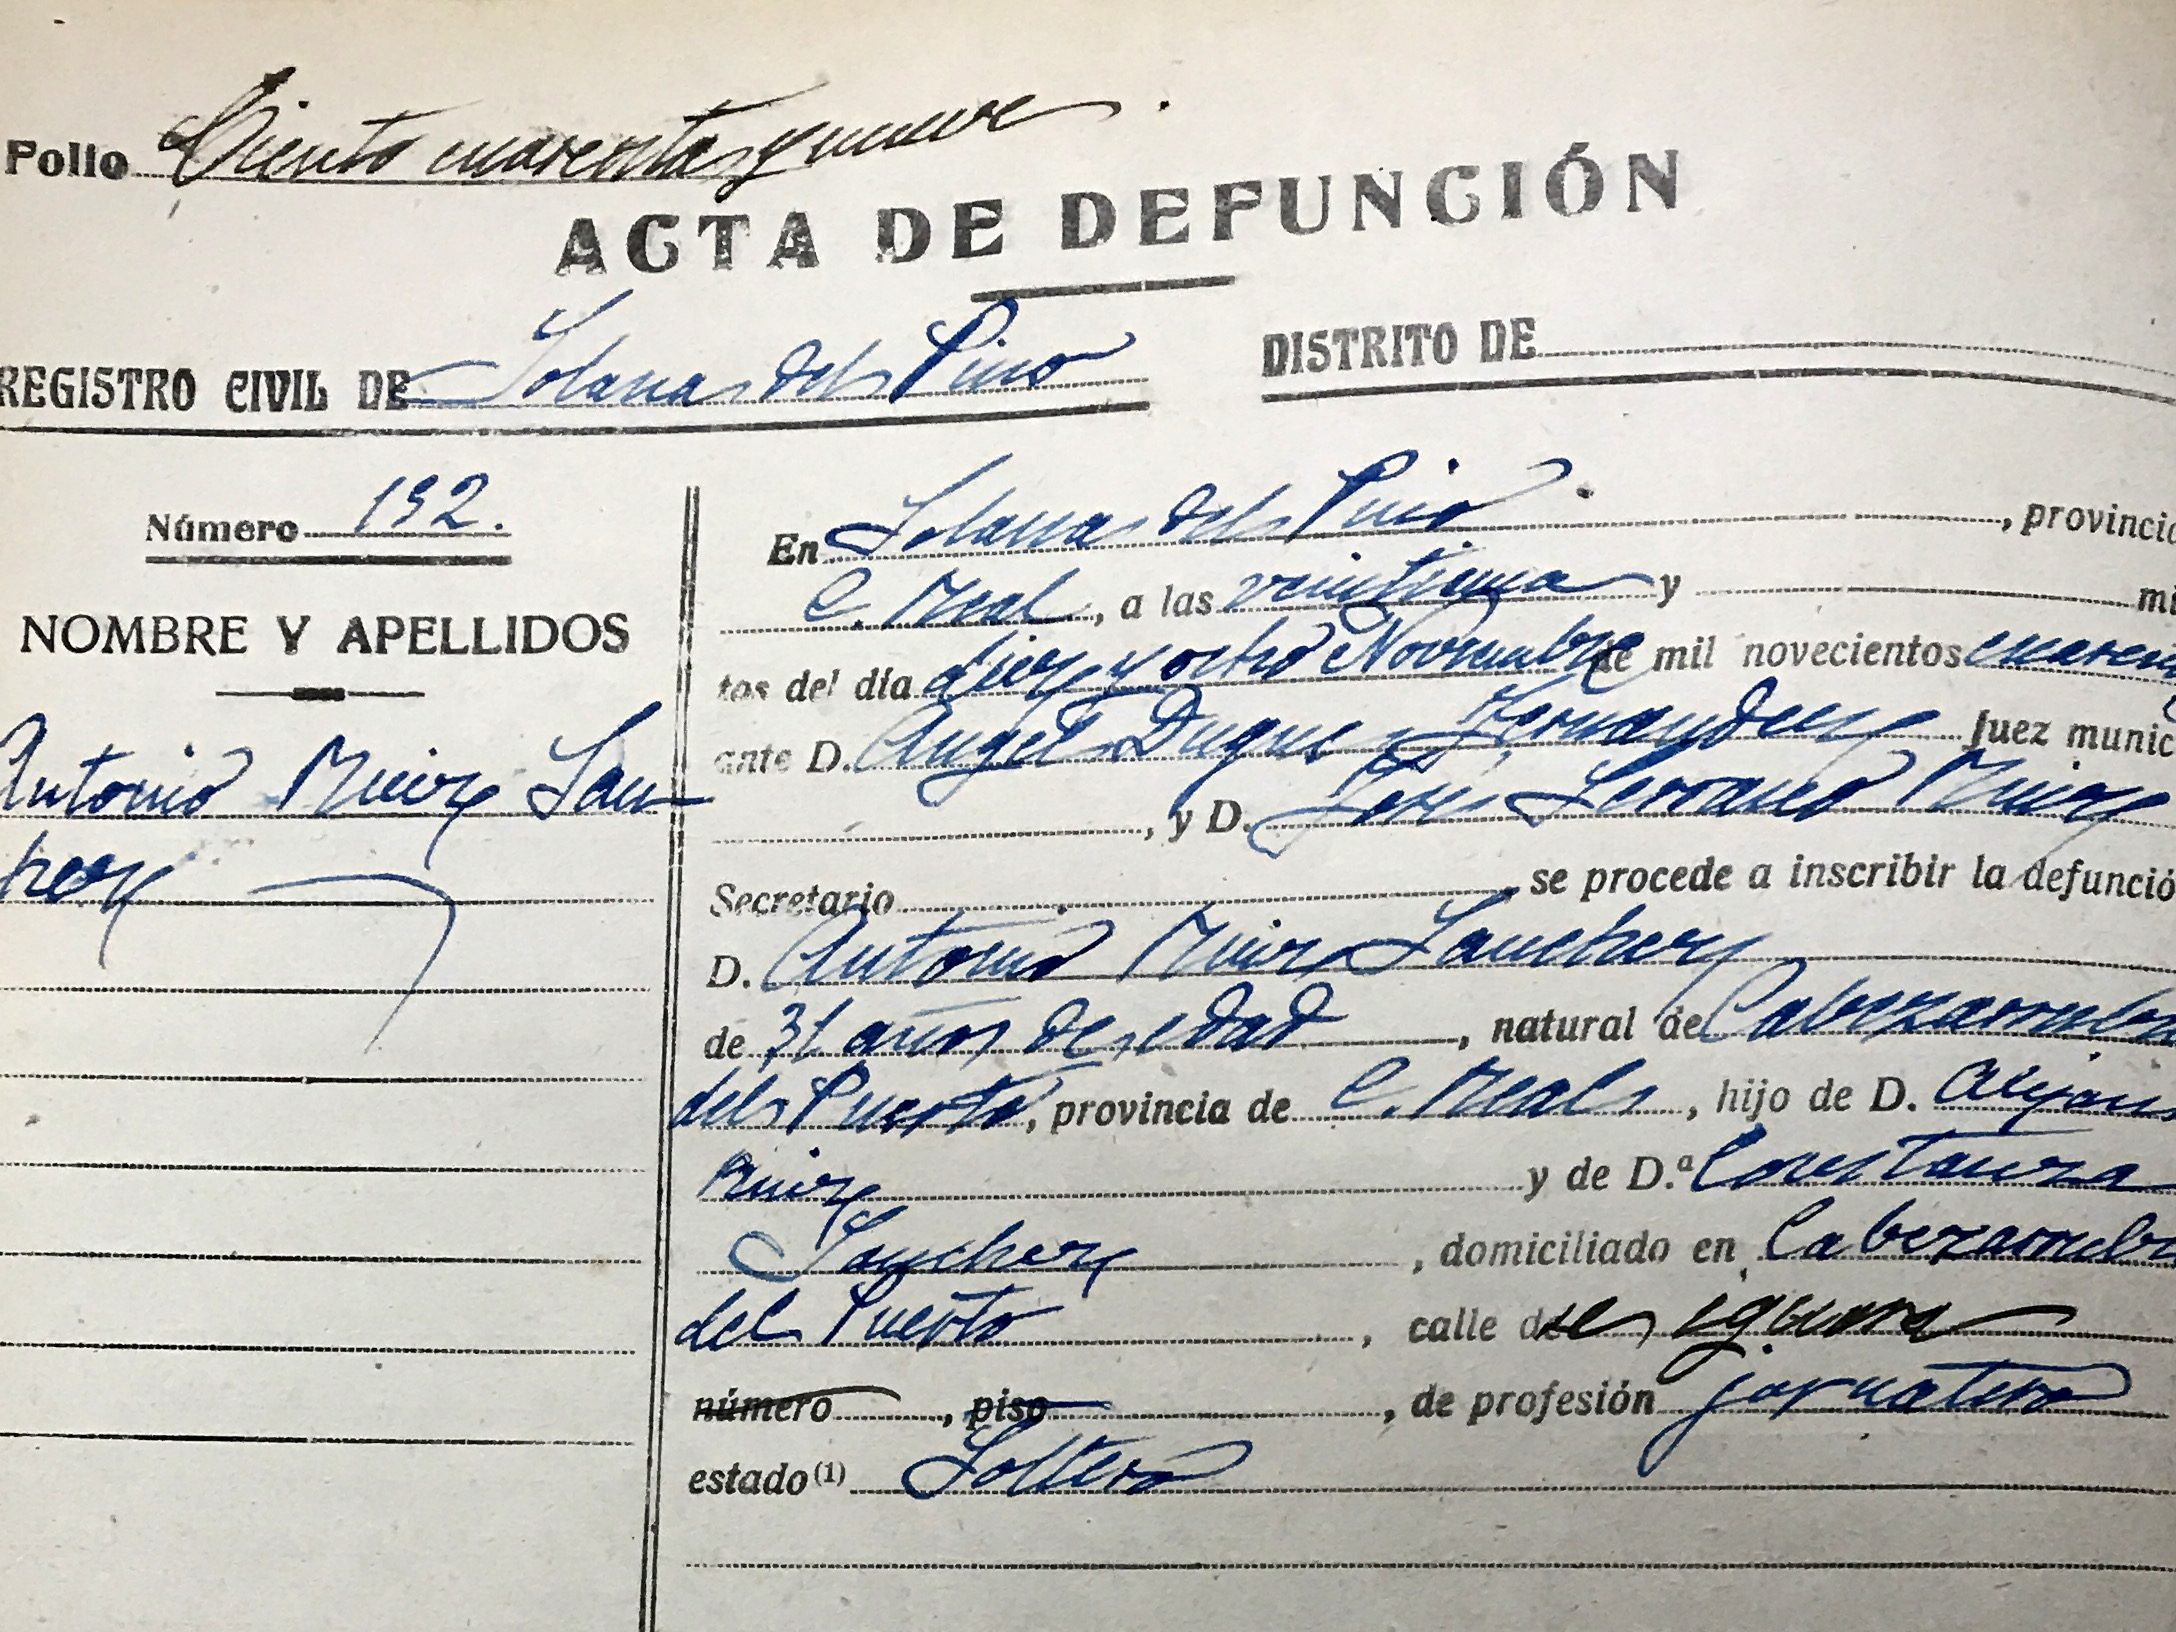 Folio Ciento cuarenta y nueve.
ACTA DE DEFUNCIÓN
REGISTRO CIVIL DE Solana del Pino
DISTRITO DE
Número 192.
NOMBRE Y APELLIDOS
Antonio Ruiz San
chez
En Solana del Pino, provincia
C. Real, a las veintiuna y mi
tos del día diez y ocho Noviembre de mil novecientos cuaren
ante D. Angel Duque y Fernandez Juez munic
, y D. José Serrano Ruiz
Secretario, se procede a inscribir la defunció
D. Antonio Ruiz Sanchez
de 31 años de edad, natural de Cabezarrubia
del Puerto, provincia de C. Real, hijo de D. Alejan
Ruiz y de D.ª Constanza
Sanchez, domiciliado en Cabezarrubi
del Puerto, calle de se ignora
número, piso, de profesión jornalero
estado (1) Soltero